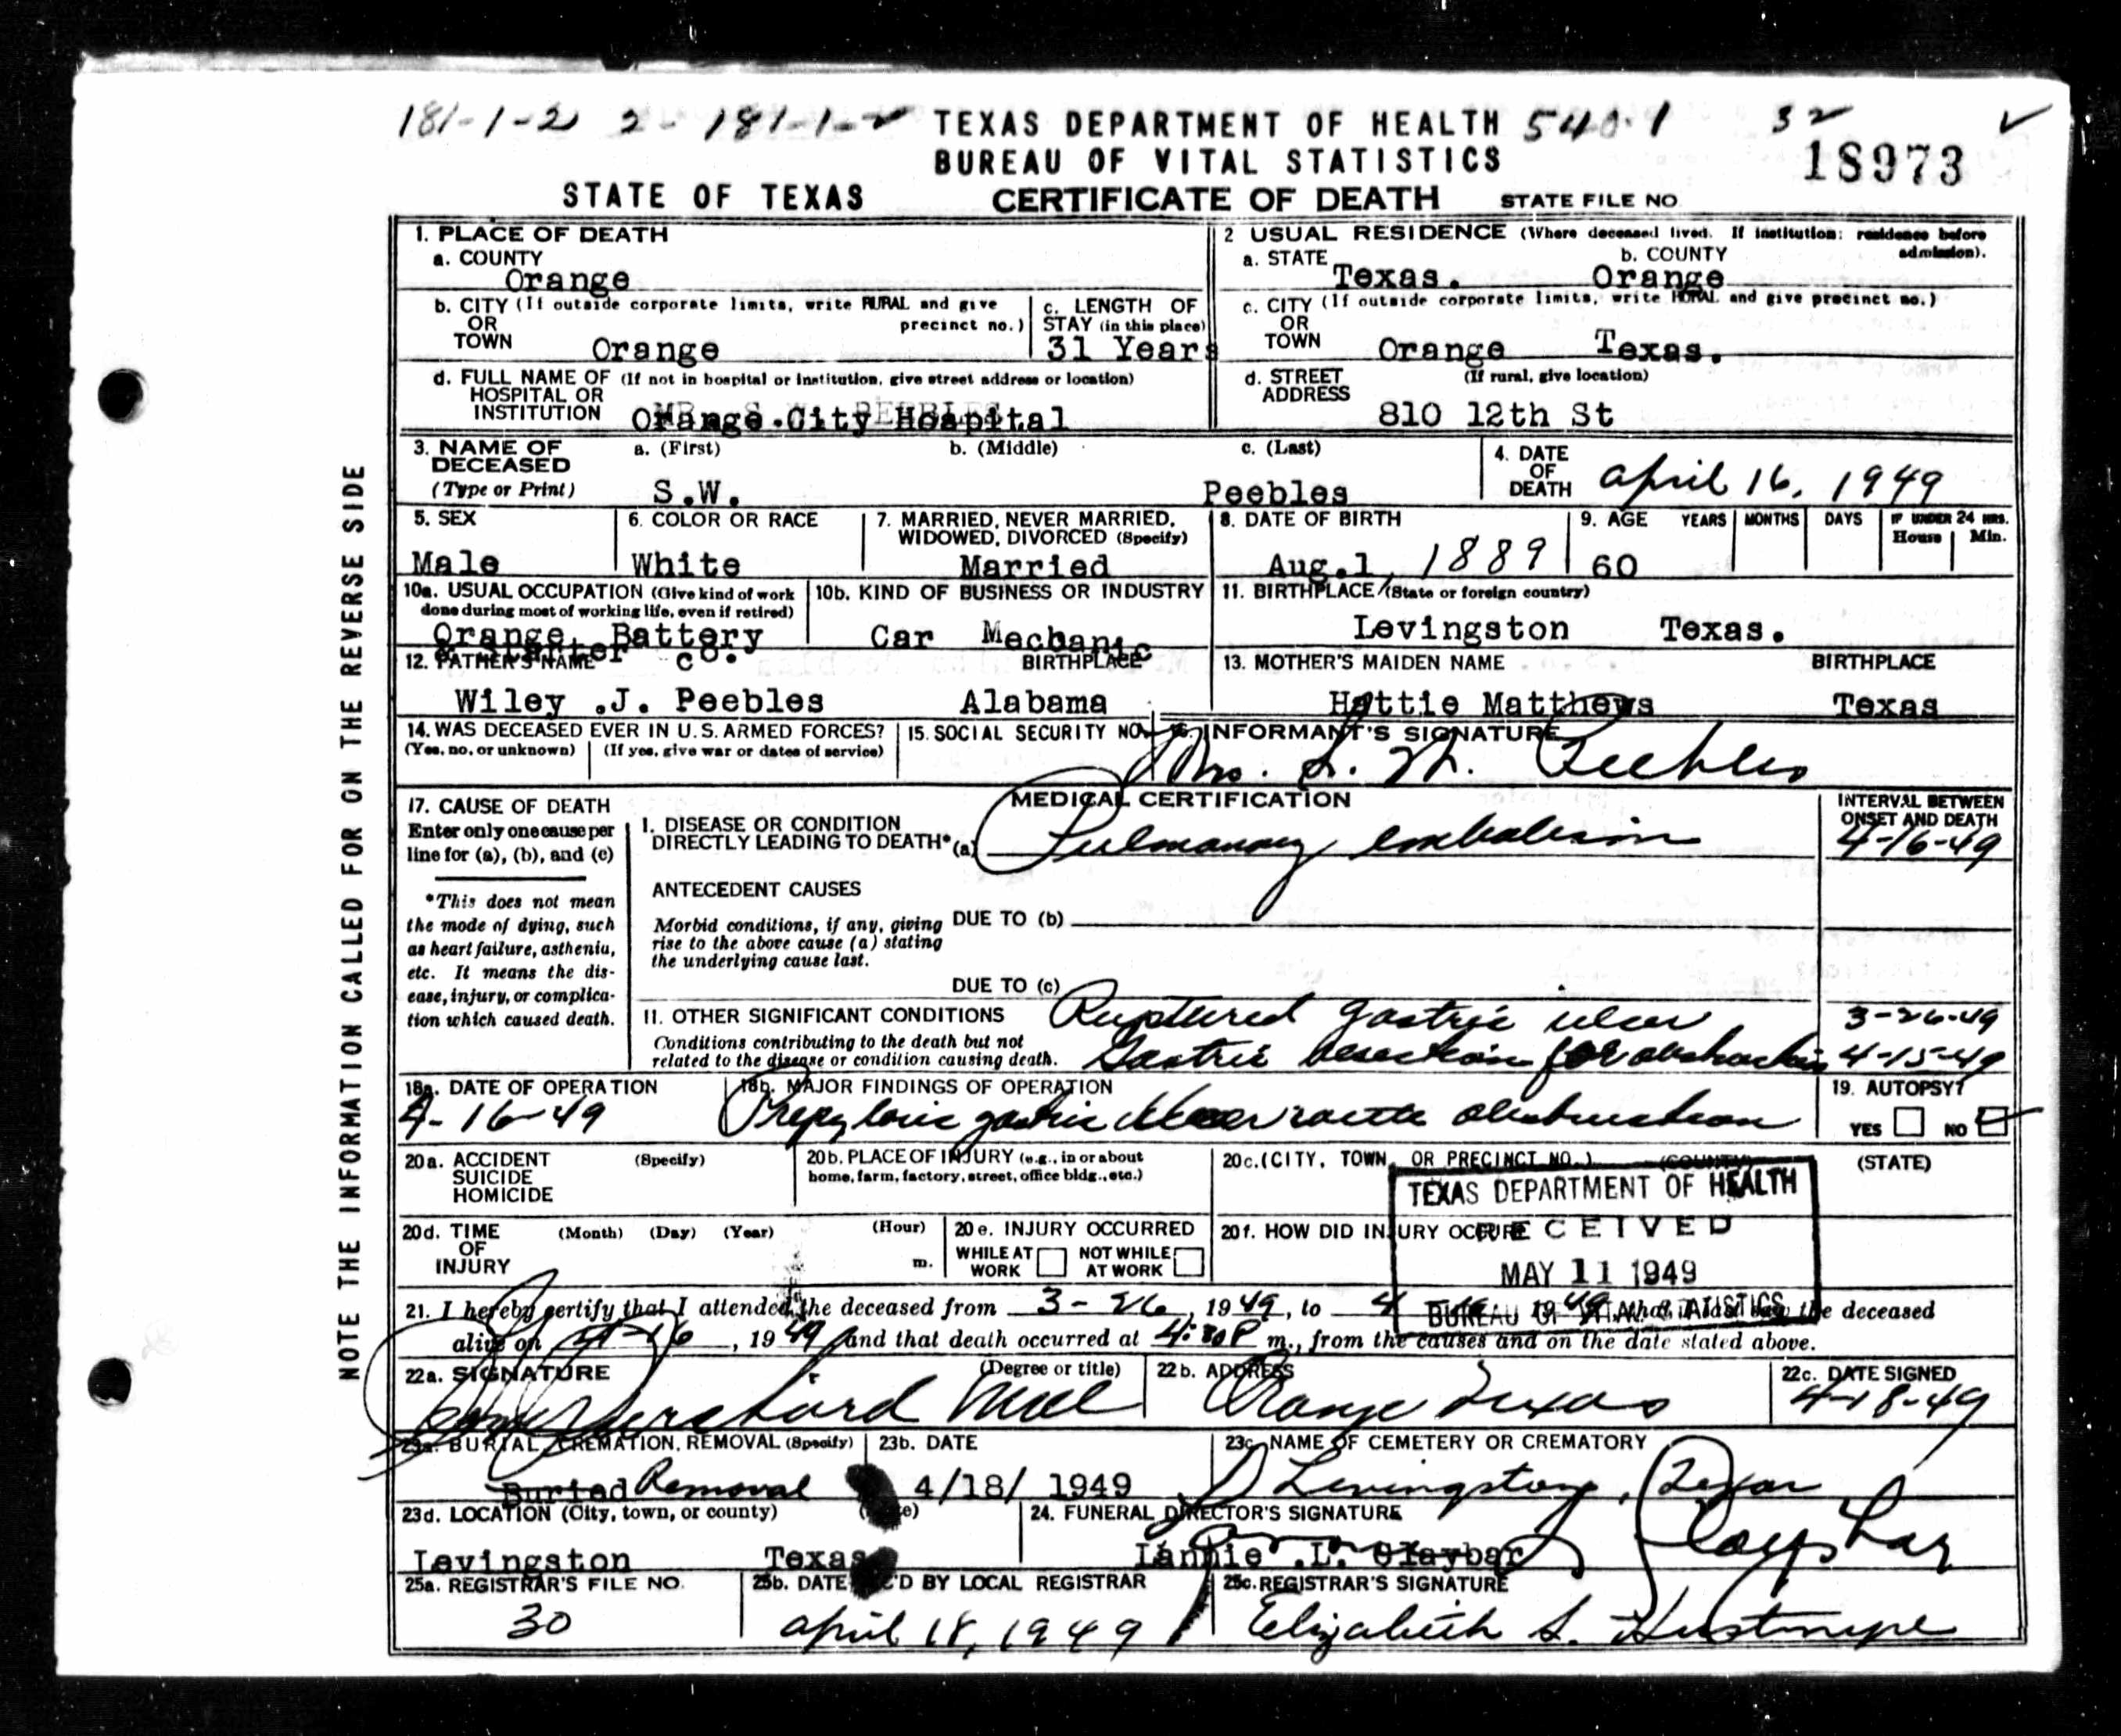 181-1-2 2 - 181-1-2 TEXAS DEPARTMENT OF HEALTH 540.1 32
BUREAU OF VITAL STATISTICS 18973
STATE OF TEXAS CERTIFICATE OF DEATH STATE FILE NO
NOTE THE INFORMATION CALLED FOR ON THE REVERSE SIDE
1. PLACE OF DEATH
a. COUNTY
Orange
2 USUAL RESIDENCE (Where deceased lived. If institution: residence before admission).
a. STATE b. COUNTY
Texas. Orange
b. CITY (If outside corporate limits, write RURAL and give precinct no.)
OR
TOWN Orange
c. LENGTH OF
STAY (in this place)
31 Years
c. CITY (If outside corporate limits, write RURAL and give precinct no.)
OR
TOWN Orange Texas.
d. FULL NAME OF (If not in hospital or institution, give street address or location)
HOSPITAL OR
INSTITUTION Orange.City Hospital
d. STREET (If rural, give location)
ADDRESS
810 12th St
3. NAME OF DECEASED
(Type or Print)
a. (First) b. (Middle) c. (Last)
S.W. Peebles
4. DATE
OF
DEATH April 16, 1949
5. SEX
Male
6. COLOR OR RACE
White
7. MARRIED, NEVER MARRIED,
WIDOWED, DIVORCED (Specify)
Married
8. DATE OF BIRTH
Aug.1, 1889
9. AGE YEARS MONTHS DAYS IF UNDER 24 HRS.
Hours Min.
60
10a. USUAL OCCUPATION (Give kind of work
done during most of working life, even if retired)
Orange Battery
& Starter Co.
10b. KIND OF BUSINESS OR INDUSTRY
Car Mechanic
11. BIRTHPLACE (State or foreign country)
Levingston Texas.
12. FATHER'S NAME BIRTHPLACE
Wiley .J. Peebles Alabama
13. MOTHER'S MAIDEN NAME BIRTHPLACE
Hattie Matthews Texas
14. WAS DECEASED EVER IN U.S. ARMED FORCES?
(Yes, no, or unknown) (If yes, give war or dates of service)
15. SOCIAL SECURITY NO.
16. INFORMANT'S SIGNATURE
Mrs. S. W. Peebles
17. CAUSE OF DEATH
Enter only one cause per
line for (a), (b), and (c)
*This does not mean
the mode of dying, such
as heart failure, asthenia,
etc. It means the dis-
ease, injury, or complica-
tion which caused death.
MEDICAL CERTIFICATION
I. DISEASE OR CONDITION
DIRECTLY LEADING TO DEATH* (a) Pulmonary embolism
INTERVAL BETWEEN
ONSET AND DEATH
4-16-49
ANTECEDENT CAUSES
Morbid conditions, if any, giving
rise to the above cause (a) stating
the underlying cause last.
DUE TO (b)
DUE TO (c)
II. OTHER SIGNIFICANT CONDITIONS
Conditions contributing to the death but not
related to the disease or condition causing death.
Ruptured gastric ulcer 3-26-49
Gastric resection for obstruction 4-15-49
18a. DATE OF OPERATION
4-16-49
18b. MAJOR FINDINGS OF OPERATION
Prepyloric gastric ulcer obstruction
19. AUTOPSY?
YES NO
20a. ACCIDENT (Specify)
SUICIDE
HOMICIDE
20b. PLACE OF INJURY (e.g., in or about
home, farm, factory, street, office bldg., etc.)
20c. (CITY, TOWN, OR PRECINCT NO.) (COUNTY) (STATE)
20d. TIME (Month) (Day) (Year) (Hour)
OF
INJURY m.
20e. INJURY OCCURRED
WHILE AT WORK NOT WHILE AT WORK
20f. HOW DID INJURY OCCUR?
TEXAS DEPARTMENT OF HEALTH
RECEIVED
MAY 11 1949
BUREAU OF VITAL STATISTICS
21. I hereby certify that I attended the deceased from 3-26, 1949, to 4 1949, that I last saw the deceased
alive on 4-16, 1949 and that death occurred at 4:30P m., from the causes and on the date stated above.
22a. SIGNATURE (Degree or title)
22b. ADDRESS
Orange Texas
22c. DATE SIGNED
4-18-49
23a. BURIAL, CREMATION, REMOVAL (Specify)
Buried Removal
23b. DATE
4/18/ 1949
23c. NAME OF CEMETERY OR CREMATORY
Levingston, Texas
23d. LOCATION (City, town, or county) (State)
Levingston Texas
24. FUNERAL DIRECTOR'S SIGNATURE
Lannie .L. Claybar Claybar
25a. REGISTRAR'S FILE NO.
30
25b. DATE REC'D BY LOCAL REGISTRAR
April 18, 1949
25c. REGISTRAR'S SIGNATURE
Elizabeth S.